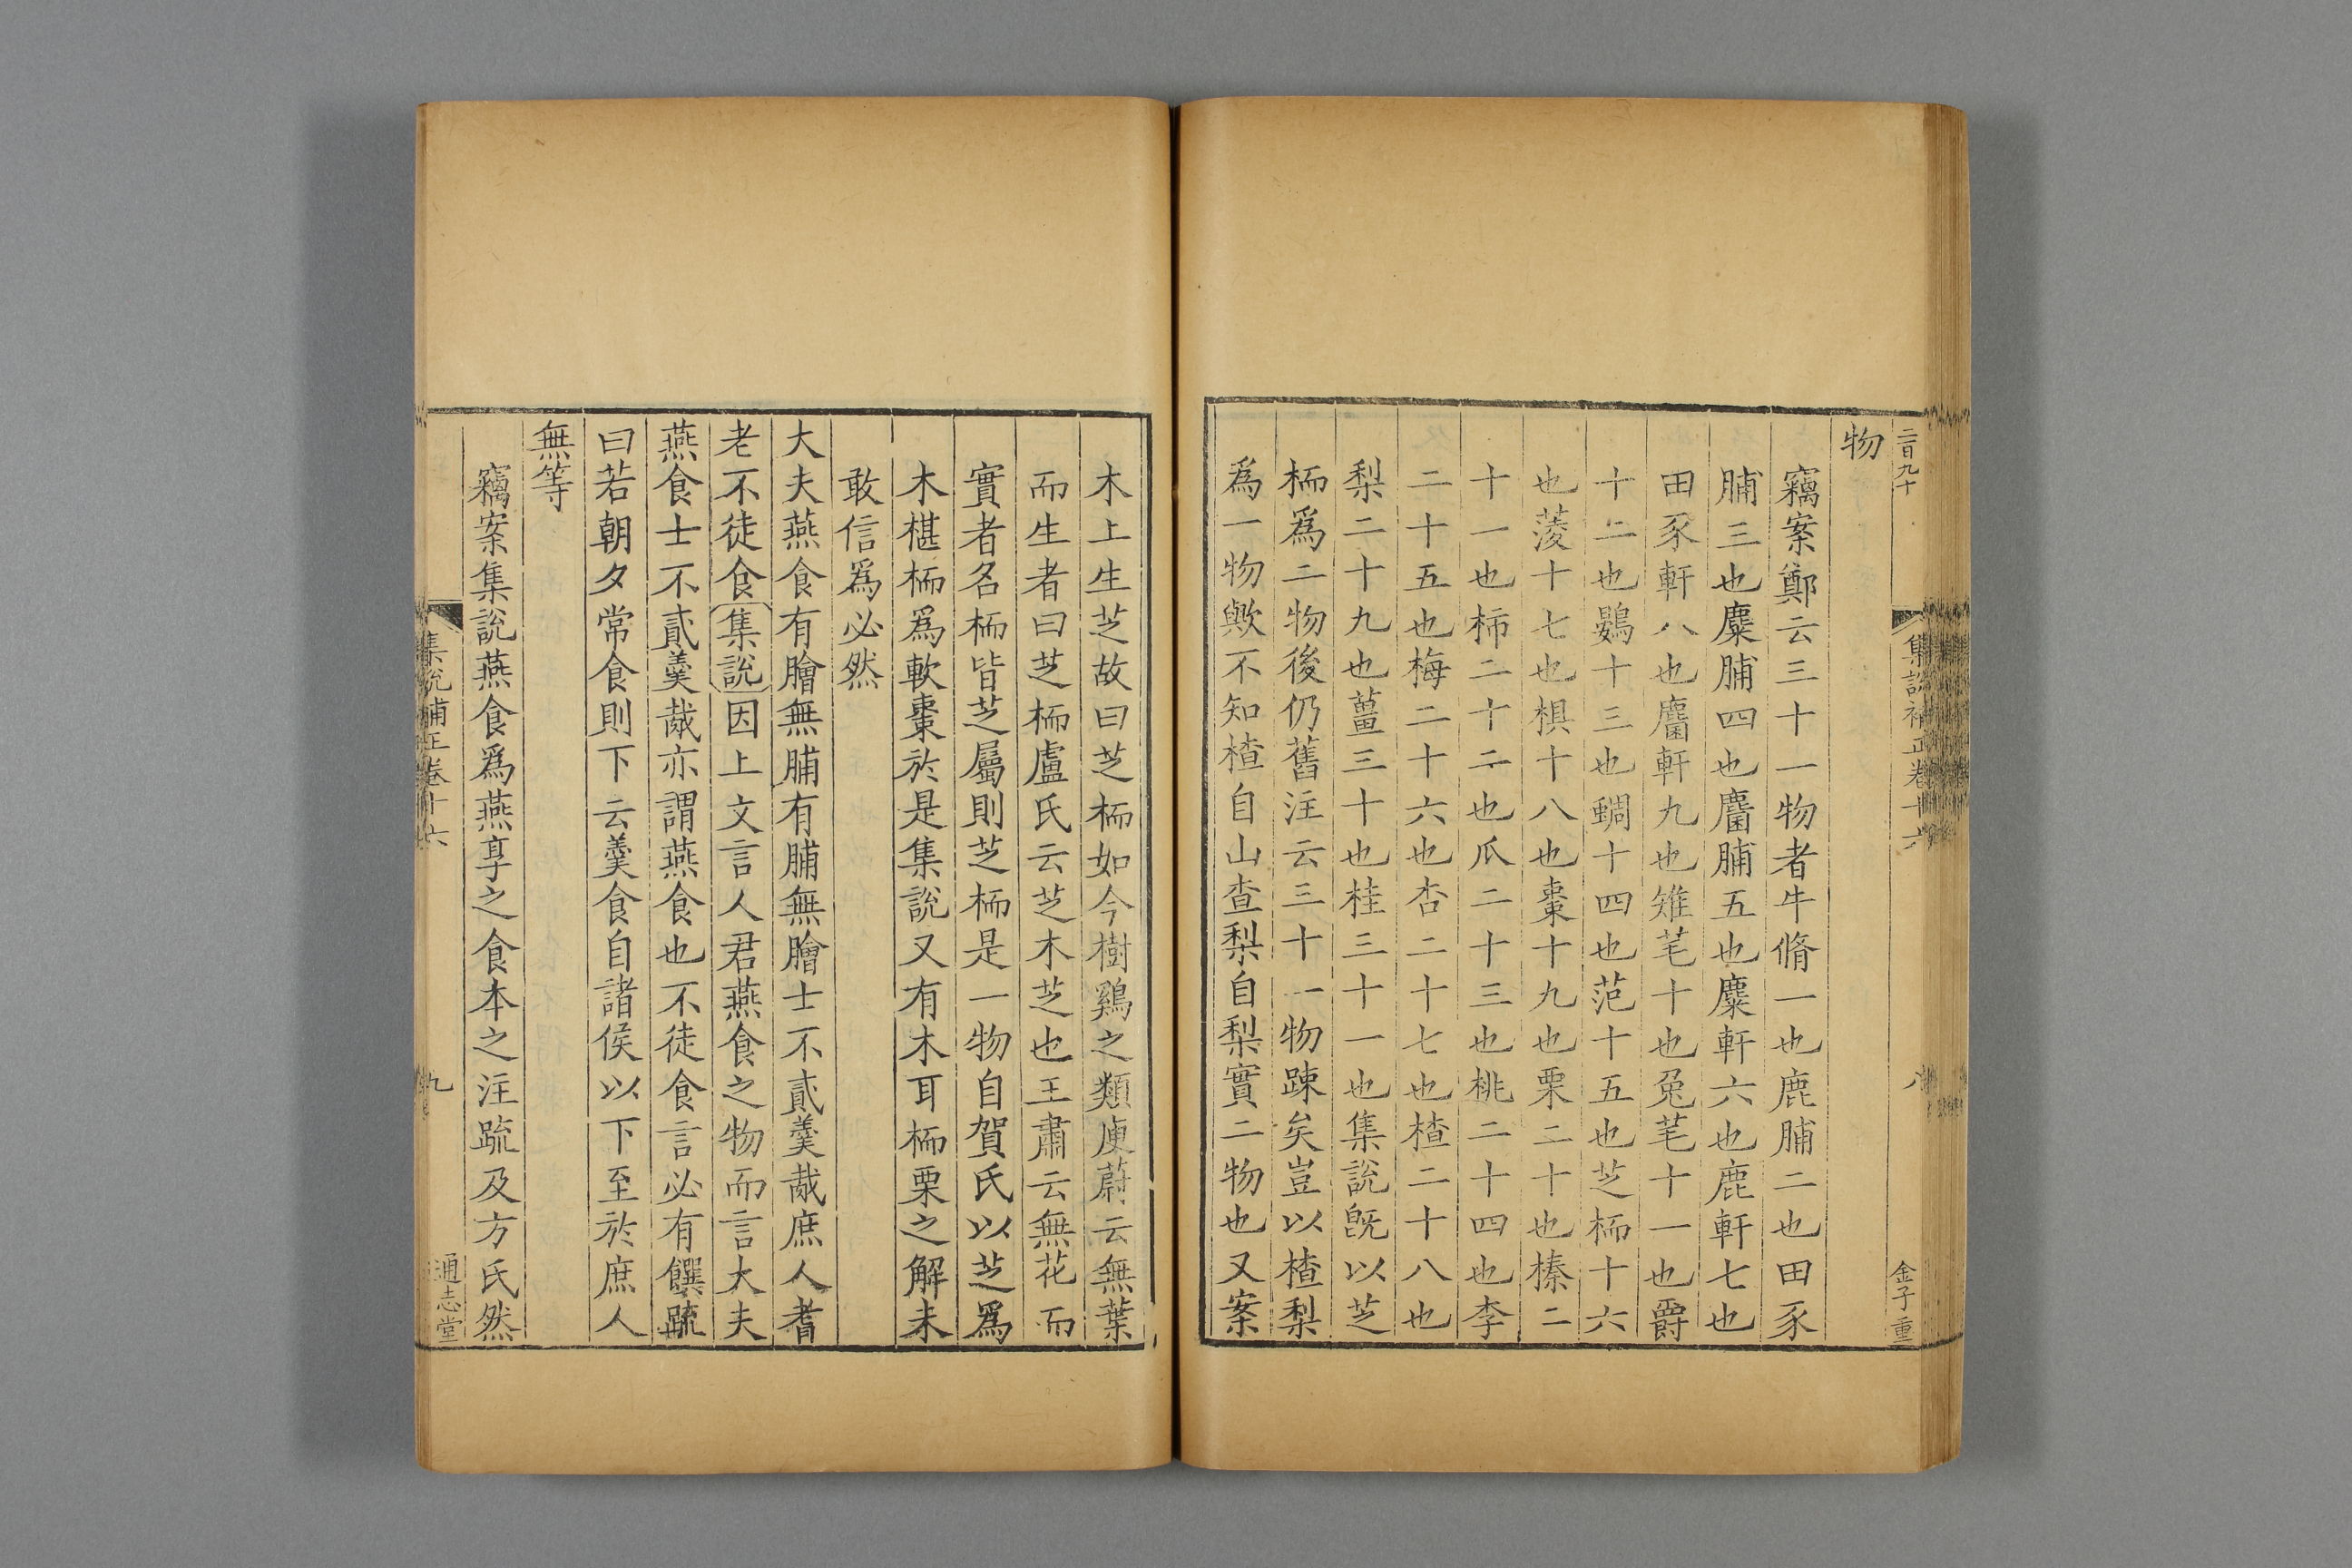 二百九十
集說補正卷十六
八
金子重
物
竊案鄭云三十一物者牛脩一也鹿脯二也田豕
脯三也麋脯四也麕脯五也麋軒六也鹿軒七也
田豕軒八也麕軒九也雉芼十也兔芼十一也爵
十二也鷃十三也蜩十四也范十五也芝栭十六
也蔆十七也椇十八也棗十九也栗二十也榛二
十一也柿二十二也瓜二十三也桃二十四也李
二十五也梅二十六也杏二十七也楂二十八也
梨二十九也薑三十也桂三十一也集說旣以芝
栭爲二物後仍舊注云三十一物踈矣豈以楂梨
爲一物歟不知楂自山查梨自梨實二物也又案
木上生芝故曰芝栭如今樹鷄之類庾蔚云無葉
而生者曰芝栭盧氏云芝木芝也王肅云無花而
實者名栭皆芝屬則芝栭是一物自賀氏以芝爲
木椹栭爲軟棗於是集說又有木耳栭栗之解未
敢信爲必然
大夫燕食有膾無脯有脯無膾士不貳羹胾庶人耆
老不徒食集說因上文言人君燕食之物而言大夫
燕食士不貳羹胾亦謂燕食也不徒食言必有饌䟽
曰若朝夕常食則下云羹食自諸侯以下至於庶人
無等
竊案集說燕食爲燕享之食本之注疏及方氏然
集說補正卷十六
九
通志堂